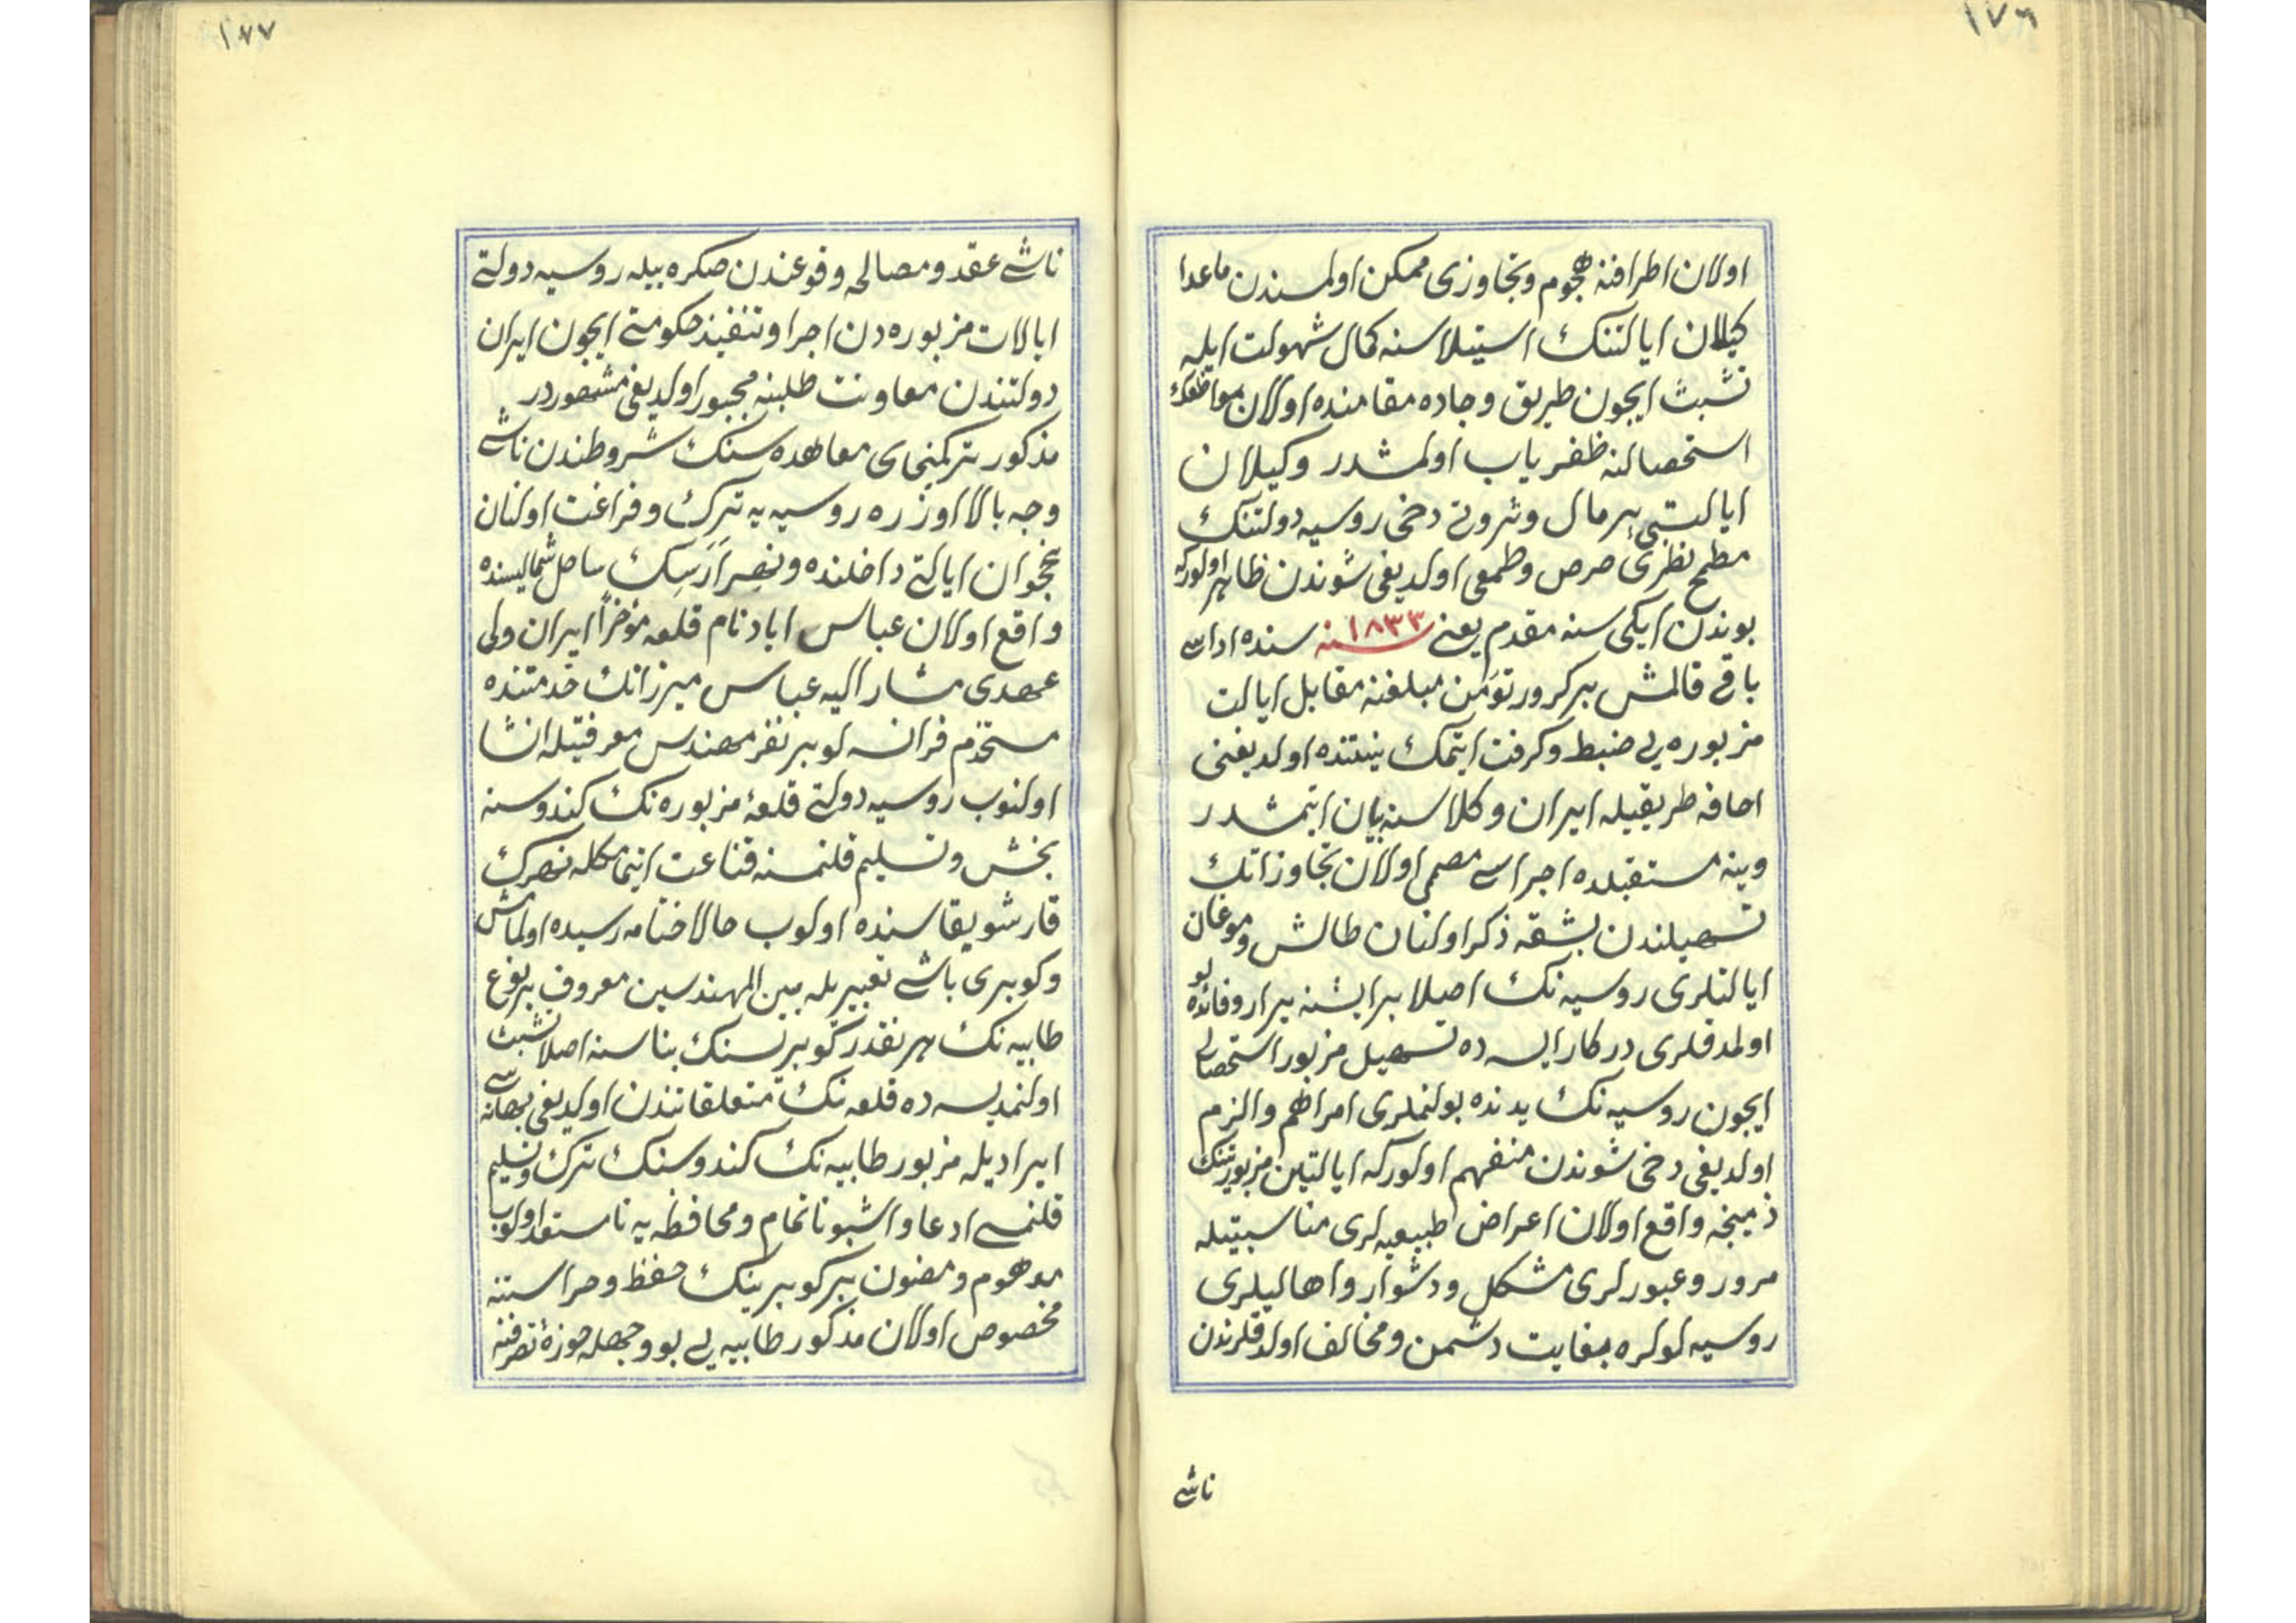 ١٧٦
اولان اطرافنه هجوم وتجاوزى ممكن اولمسندن ماعدا
كيلان ايالتنك استيلاسنه كمال سهولت ايله
تشبث ايچون طريق وجاده مقامنده اولان مواقعك
استحصالنه ظفرياب اولمشدر وكيلان
ايالتى پرمال وثروتى دخى روسيه دولتنك
مطمح نظرى حرص وطمعى اولديغى شوندن ظاهر اولوركه
بوندن ايكى سنه مقدم يعنى ١٨٣٣ سنه سنده اداسى
باقى قالمش بر كرور تومن مبلغنه مقابل ايالت
مزبوره يى ضبط وكرفت ايتمك نيتنده اولديغنى
اخافه طريقيله ايران وكلاسنه بيان ايتمشدر
وينه مستقبلده اجراسى مصمى اولان تجاوزاتك
تسهيلندن بشقه ذكر اولنان طالش وموغان
ايالتلرى روسيه نك اصلا بر ايشنه يرار وفائده لو
اولمدقلرى دركار ايسه ده تسهيل مزبور استحصالى
ايچون روسيه نك يدنده بولنملرى امر اهم والزم
اولديغى دخى شوندن منفهم اولوركه ايالتين مزبورتينك
ذمينجه واقع اولان اعراض طبيعيه لرى مناسبتيله
مرور وعبورلرى مشكل ودشوار واهاليلرى
روسيه لولره بغايت دشمن ومخالف اولدقلرندن
ناشى
١٧٧
ناشى عقد ومصالحه وقوعندن صكره بيله روسيه دولتى
ايالات مزبوره دن اجرا وتنفيذ حكومتى ايچون ايران
دولتندن معاونت طلبنه مجبور اولديغى مشهوردر
مذكور تركمنچاى معاهده سنك شروطندن ناشى
وجه بالا اوزره روسيه يه ترك وفراغت اولنان
نخجوان ايالتى داخلنده ونهر ارسك ساحل شماليسنده
واقع اولان عباس اباد نام قلعه مؤخراً ايران ولى
عهدى مشار اليه عباس ميرزانك خدمتنده
مستخدم فرانسه لو بر نفر مهندس معرفتيله انشا
اولنوب روسيه دولتى قلعۀ مزبوره نك كندوسنه
بخش وتسليم قلنمسنه قناعت ايتمامكله نهرك
قارشو يقاسنده اولوب حالا ختامه رسيده اولمامش
وكوپرى باشى تعبيريله بين المهندسين معروف بر نوع
طابيه نك هر نقدر كوپرينك بناسنه اصلا تشبث
اولنمديسه ده قلعه نك متعلقاتندن اولديغى بهانه سى
ايراديله مزبور طابيه نك كندوسنك ترك وتسليم
قلنمسى ادعا واشبو ناتمام ومحافظه يه نامستعد اولوب
موهوم ومضنون بر كوپرينك حفظ وحراستنه
مخصوص اولان مذكور طابيه يى بو وجهله حوزۀ تصرفنه